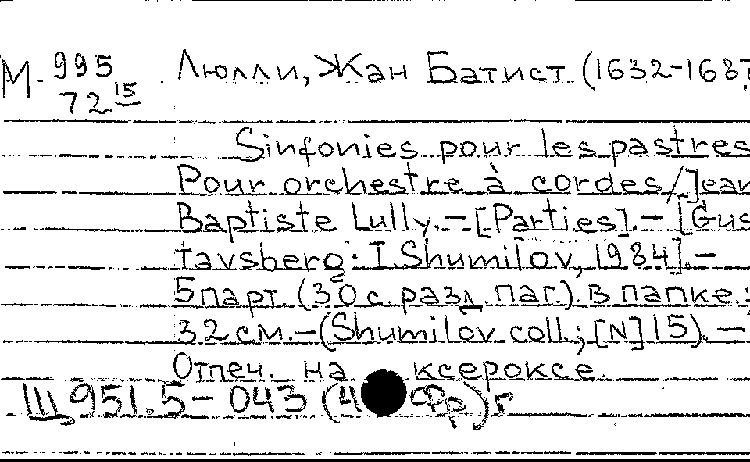 М-995 Люлли, Жан Батист (1632-1687
72 15
Sinfonies pour les pastres
Pour orchestre à cordes / Jean
Baptiste Lully. - [Parties]. - [Gus
tavsberg: I. Shumilov, 1984]. -
5 парт. (30 с. разд. паг.). в папке;
32 см. - (Shumilov coll.; [N] 15). -
Отпеч. на ксероксе.
Щ951.5-043 (4 Фр)